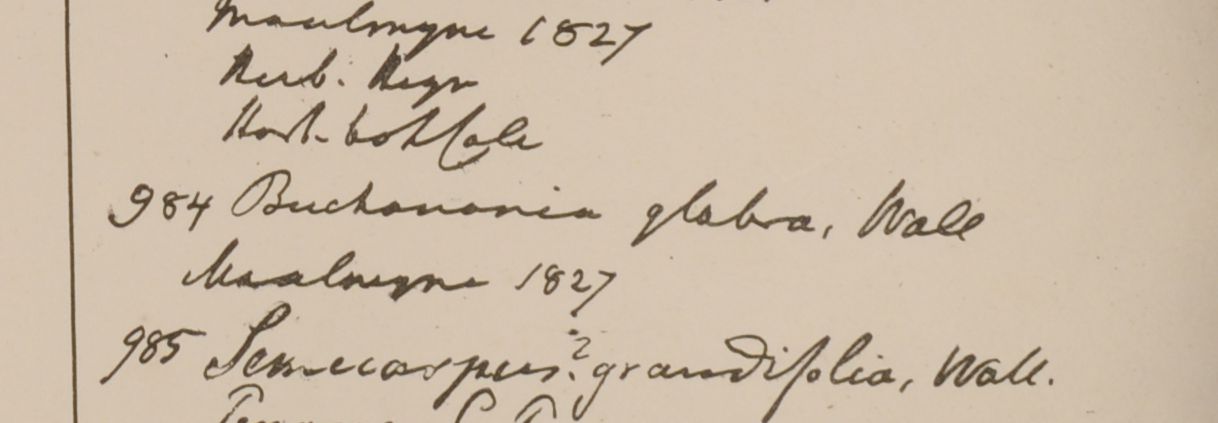 Maulmyne 1827
Herb. Heyn
Hort. bot Calc
984 Buchanania glabra, Wall
Maalmyne 1827
985 Semecarpus? grandifolia, Wall.